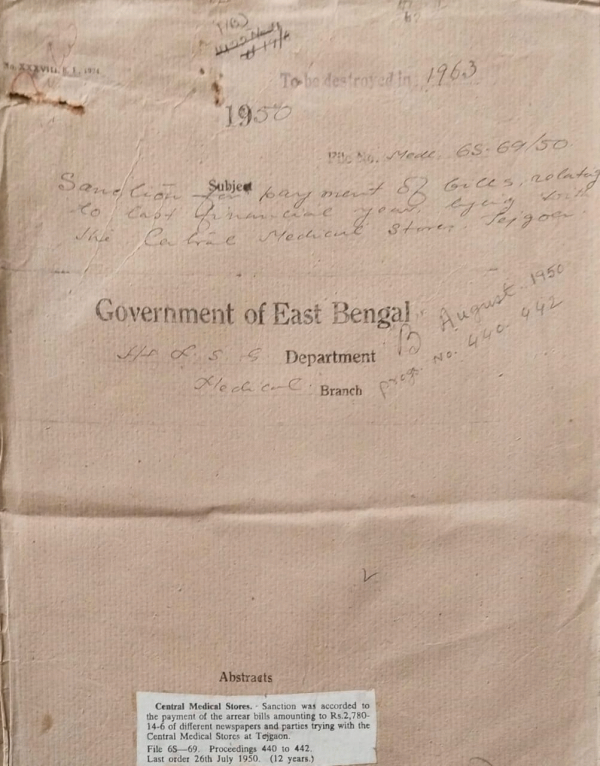 (B)
To be destroyed in 1963
1950
File No. Medl. 6S-69/50
Subject
Sanction for payment of bills, relating
to last financial year, lying with
the Central Medical Stores, Tejgaon.
Government of East Bengal
H & L. S. G Department
Medical Branch
B August 1950
progs. No. 440-442
Abstracts
Central Medical Stores. Sanction was accorded to
the payment of the arrear bills amounting to Rs.2,780-
14-6 of different newspapers and parties trying with the
Central Medical Stores at Tejgaon.
File 6S—69. Proceedings 440 to 442.
Last order 26th July 1950. (12 years.)